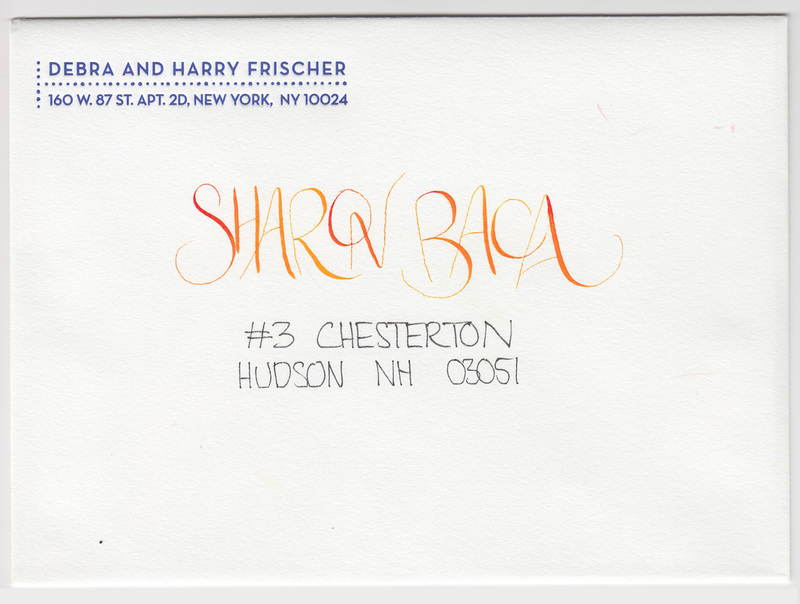 DEBRA AND HARRY FRISCHER
160 W. 87 ST. APT. 2D, NEW YORK, NY 10024
SHARON BACA
#3 CHESTERTON
HUDSON NH 03051